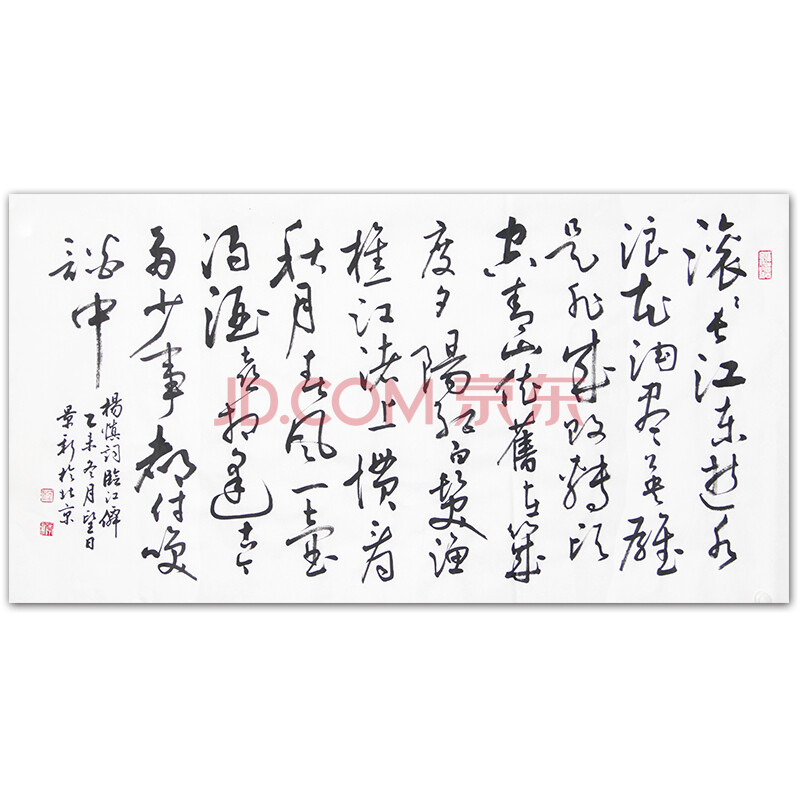 滚滚长江东逝水
浪花淘尽英雄
是非成败轉头
空青山依舊在幾
度夕陽红白髮渔
樵江渚上惯看
秋月春风一壶
浊酒喜相逢古今
多少事都付笑
談中
楊慎詞臨江僊
乙未冬月望日
景新於北京
JD.COM 京东